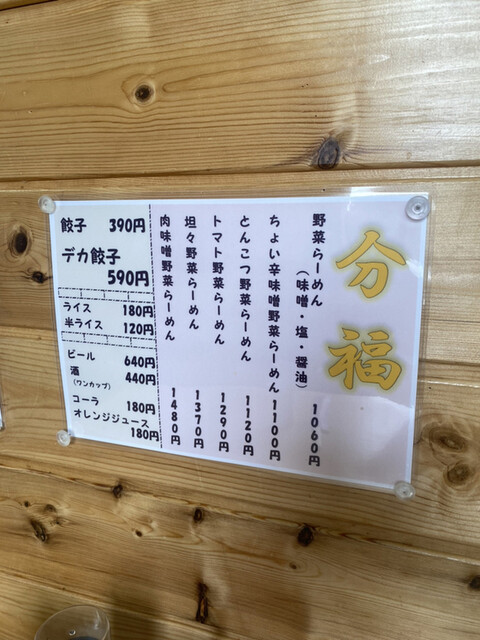 分福
野菜らーめん
（味噌・塩・醤油） 1060円
ちょい辛味噌野菜らーめん 1100円
とんこつ野菜らーめん 1120円
トマト野菜らーめん 1290円
坦々野菜らーめん 1370円
肉味噌野菜らーめん 1480円
餃子 390円
デカ餃子
590円
ライス 180円
半ライス 120円
ビール 640円
酒 440円
（ワンカップ）
コーラ 180円
オレンジジュース
180円